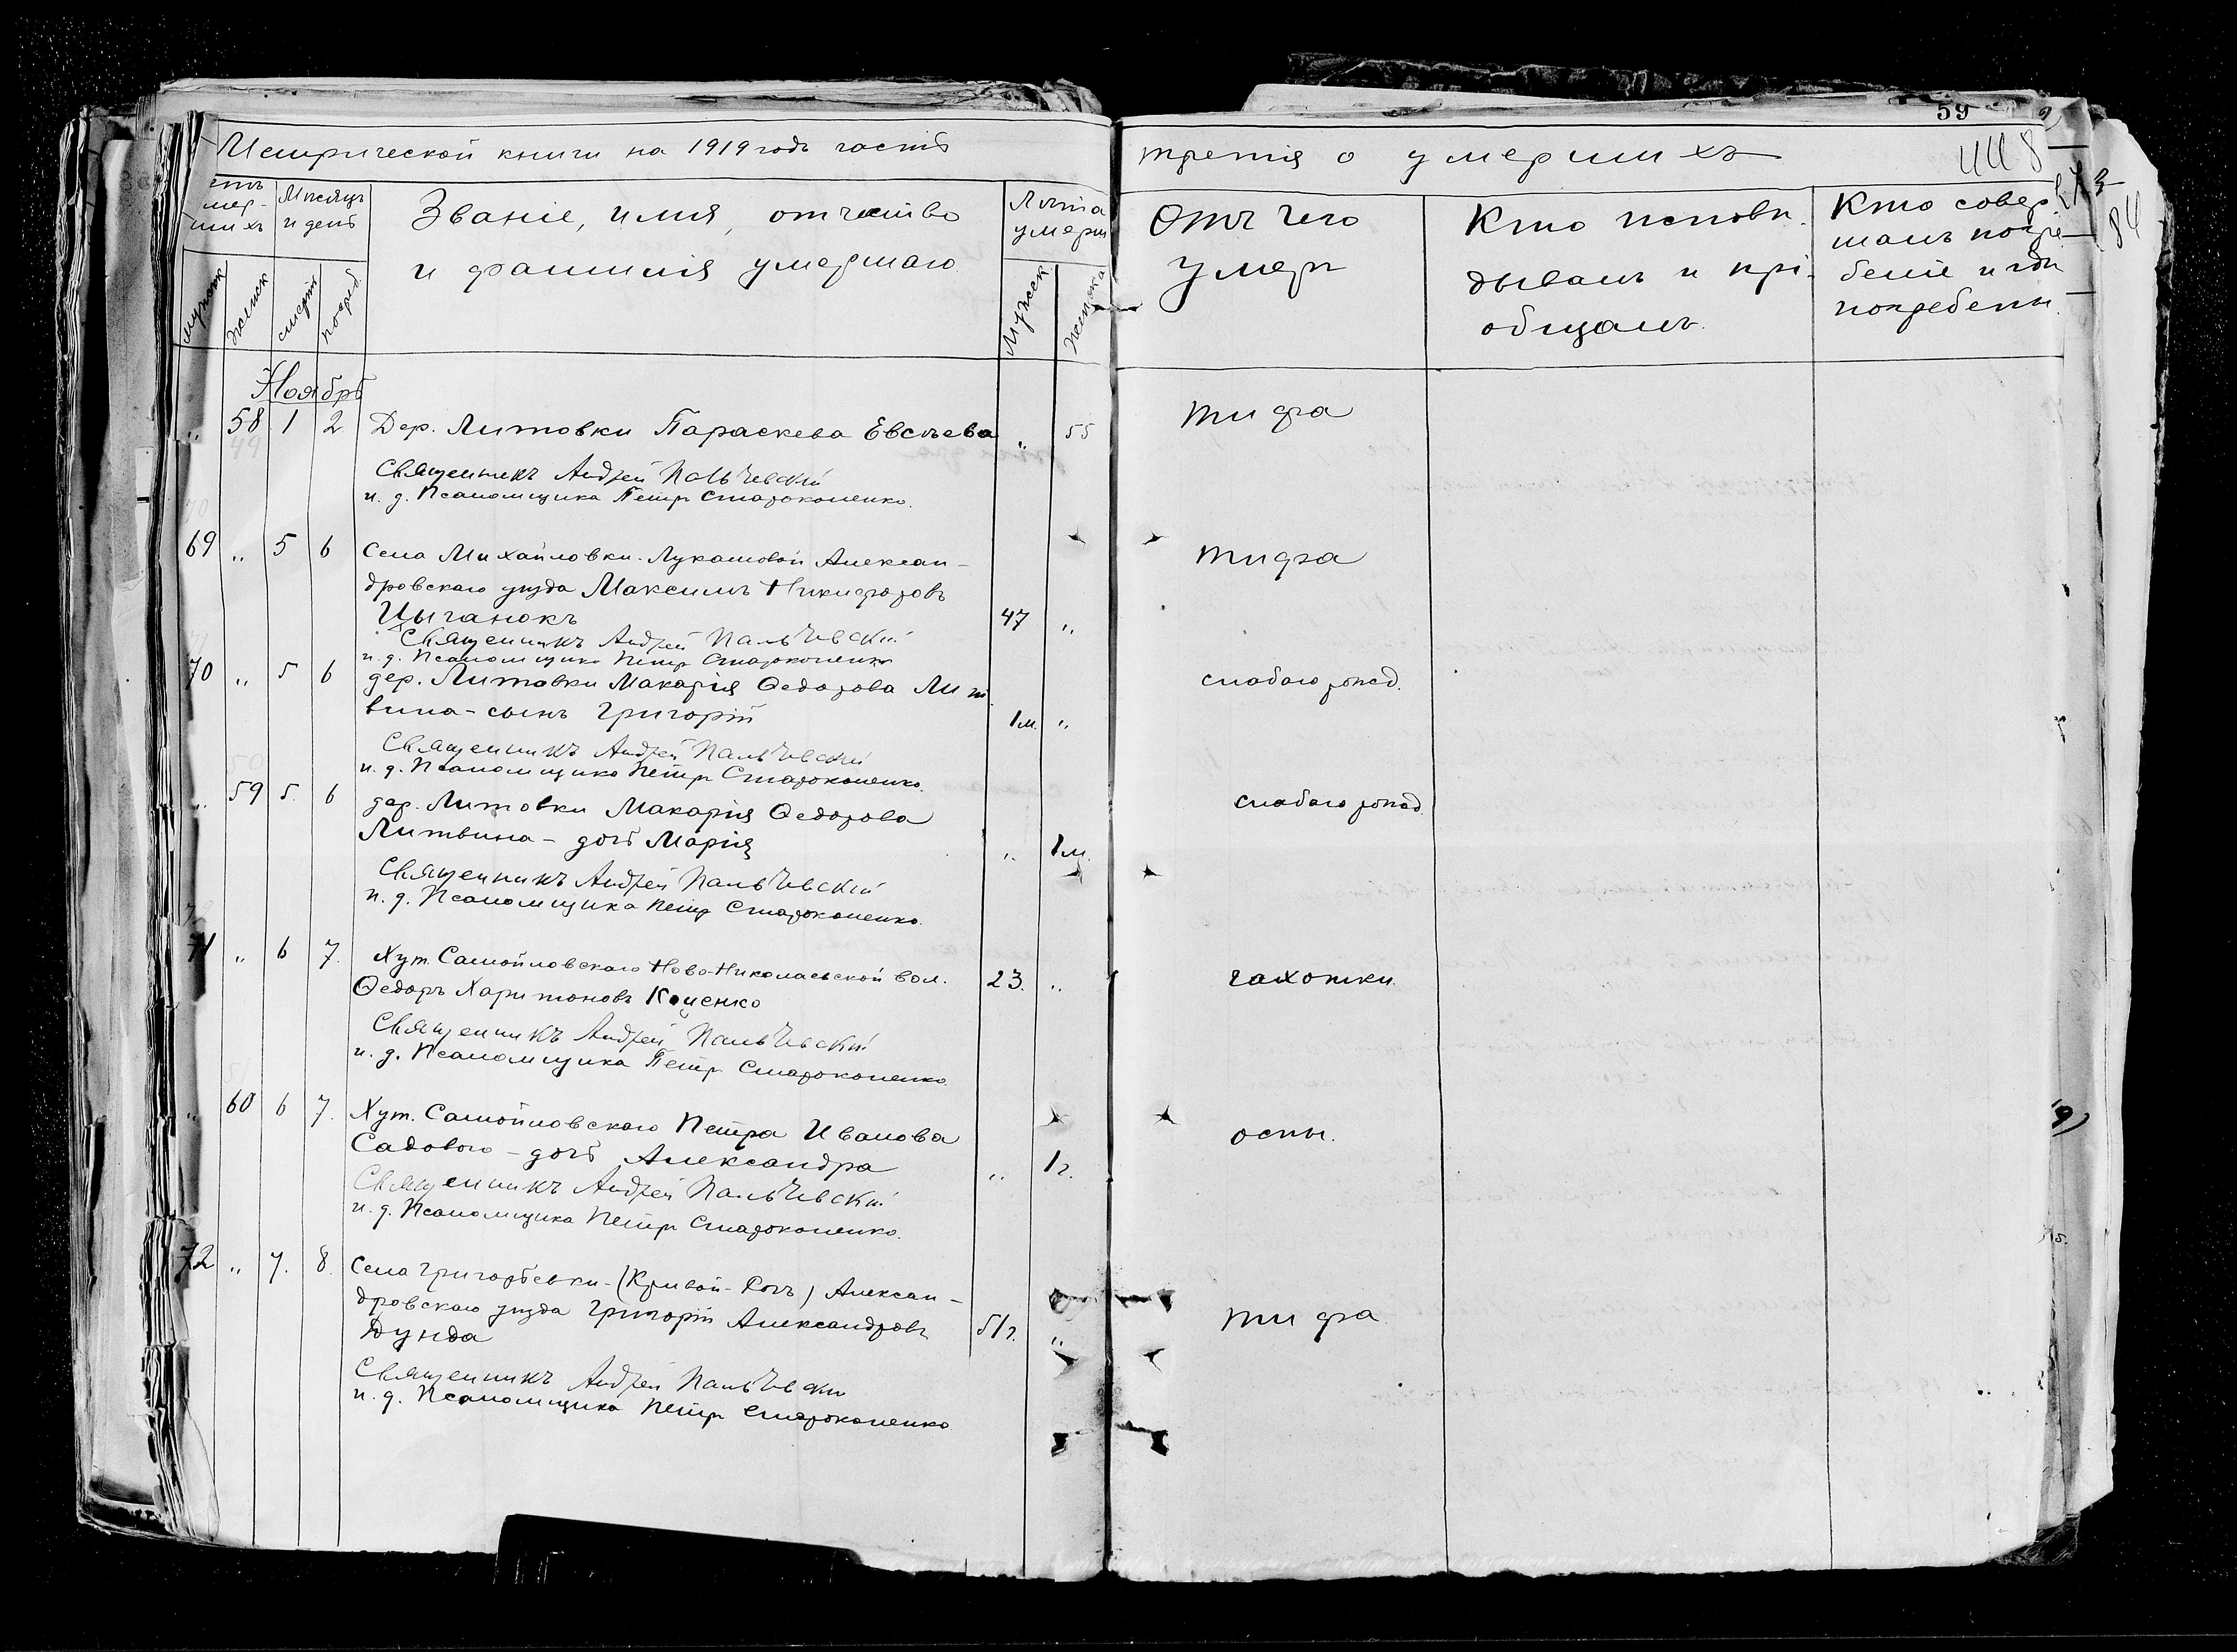 Метрической книги на 1919 годъ часть
третія о умершихъ
59
Мѣсяцъ
и день
Званіе, имя, отчество
и фамилія умершаго
Лѣта
умерш
Отъ чего
умеръ
Кто исповѣ-
дывалъ и прі-
общалъ.
Кто совер
шалъ погре-
беніе и гдѣ
погребены.
мужск
женск
смерти
погреб.
Мужск
женска
Ноябрь
" 58 1 2 Дер. Литовки Параскева Евсѣева " 55 тифа
49
Священникъ Андрей Пальчевскій
и. д. Псаломщика Петръ Староконенко.
69 " 5 6 Села Михайловки-Лукашовой Алексан-
дровскаго уѣзда Максимъ Никифоровъ
Цыганокъ 47 " тифа
Священникъ Андрей Пальчевскій
и. д. Псаломщика Петръ Староконенко
70 " 5 6 дер. Литовки Макарія Ѳедорова Лит
вина - сынъ Григорій 1 м. " слабаго рожд.
Священникъ Андрей Пальчевскій
и. д. Псаломщика Петръ Староконенко.
50
" 59 5. 6 дер. Литовки Макарія Ѳедорова
Литвина - дочь Марія " 1 м. слабаго рожд.
Священникъ Андрей Пальчевскій
и. д. Псаломщика Петръ Староконенко.
71 " 6 7. Хут. Самойловскаго Ново-Николаевской вол.
Ѳедоръ Харитоновъ Коценко 23. " чахотки.
Священникъ Андрей Пальчевскій
и. д. Псаломщика Петръ Староконенко.
51
" 60 6 7. Хут. Самойловскаго Петра Иванова
Садового - дочь Александра " 1 г. оспы.
Священникъ Андрей Пальчевскій
и. д. Псаломщика Петръ Староконенко.
72 " 7. 8. Села Григорьевки-(Кривой-Рогъ) Алексан-
дровскаго уѣзда Григорій Александровъ
Дунда 51 г. " тифа
Священникъ Андрей Пальчевскій
и. д. Псаломщика Петръ Староконенко